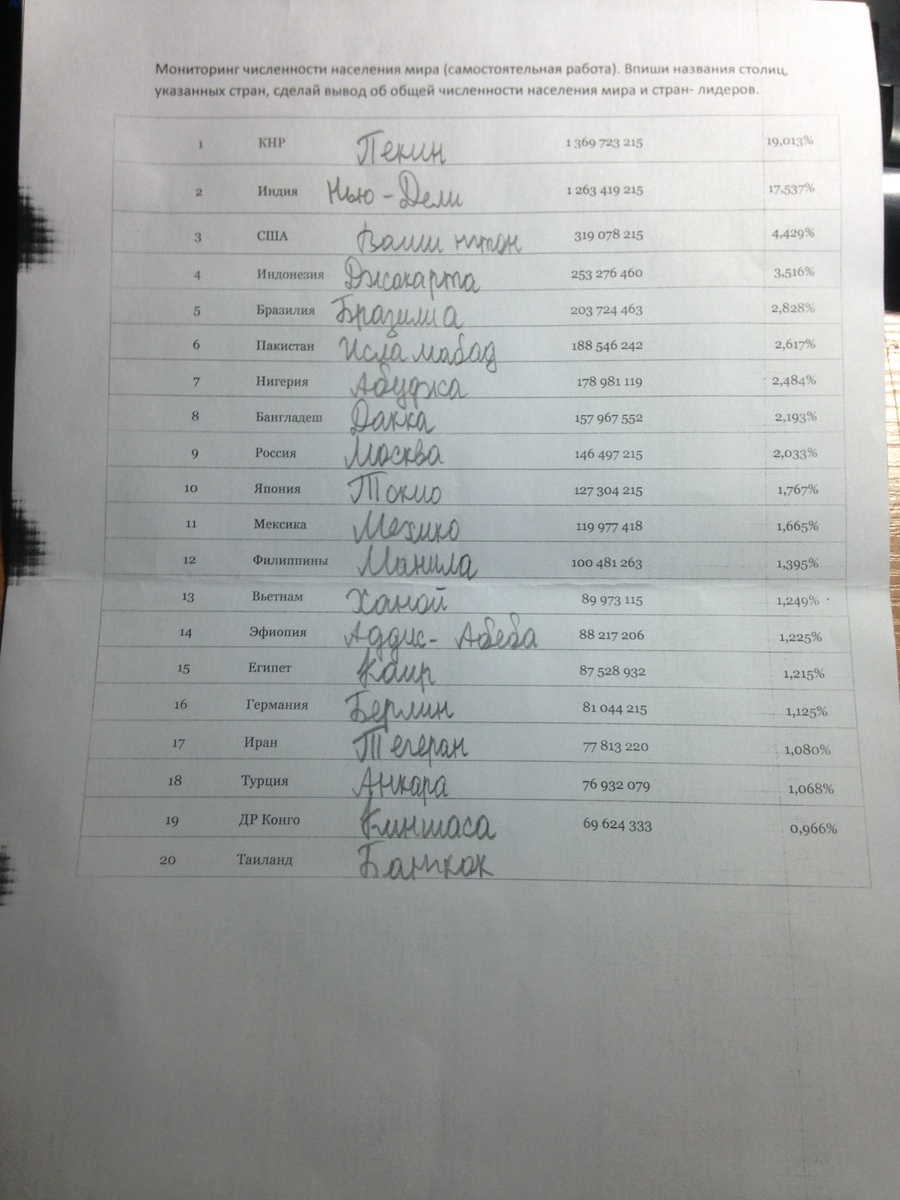 Мониторинг численности населения мира (самостоятельная работа). Впиши названия столиц,
указанных стран, сделай вывод об общей численности населения мира и стран- лидеров.
1 КНР Пекин 1 369 723 215 19,013%
2 Индия Нью-Дели 1 263 419 215 17,537%
3 США Вашингтон 319 078 215 4,429%
4 Индонезия Джакарта 253 276 460 3,516%
5 Бразилия Бразилиа 203 724 463 2,828%
6 Пакистан Исламабад 188 546 242 2,617%
7 Нигерия Абуджа 178 981 119 2,484%
8 Бангладеш Дакка 157 967 552 2,193%
9 Россия Москва 146 497 215 2,033%
10 Япония Токио 127 304 215 1,767%
11 Мексика Мехико 119 977 418 1,665%
12 Филиппины Манила 100 481 263 1,395%
13 Вьетнам Ханой 89 973 115 1,249%
14 Эфиопия Аддис- Абеба 88 217 206 1,225%
15 Египет Каир 87 528 932 1,215%
16 Германия Берлин 81 044 215 1,125%
17 Иран Тегеран 77 813 220 1,080%
18 Турция Анкара 76 932 079 1,068%
19 ДР Конго Киншаса 69 624 333 0,966%
20 Таиланд Бангкок